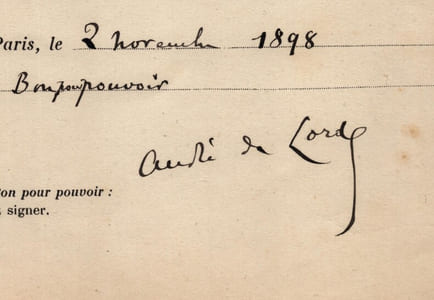 Paris, le 2 novembre 1898
Bon pour pouvoir
André de Lorde
on pour pouvoir :
signer.